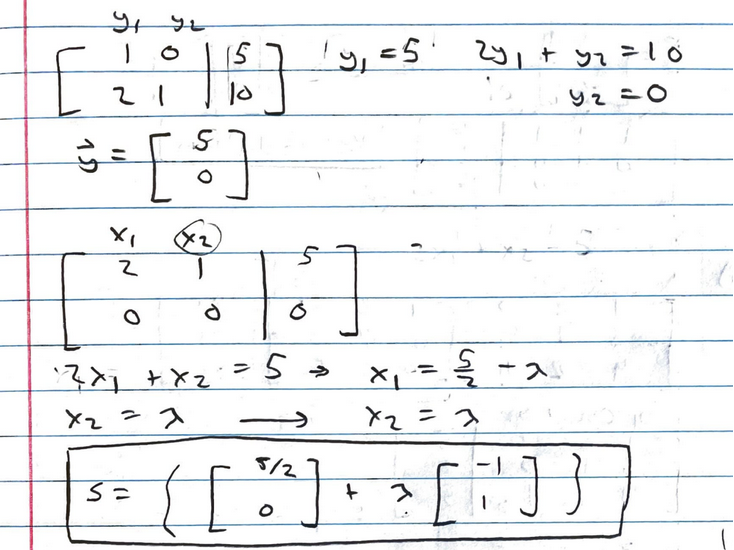 y₁ y₂
[ 1 0 | 5 ] y₁ = 5 2y₁ + y₂ = 10
[ 2 1 | 10 ] y₂ = 0
y⃗ = [ 5
0 ]
x₁ x₂
[ 2 1 | 5 ]
[ 0 0 | 0 ]
2x₁ + x₂ = 5 → x₁ = 5/2 - λ
x₂ = λ → x₂ = λ
S = { [ 5/2 ] + λ [ -1 ] }
[ 0 ] [ 1 ]